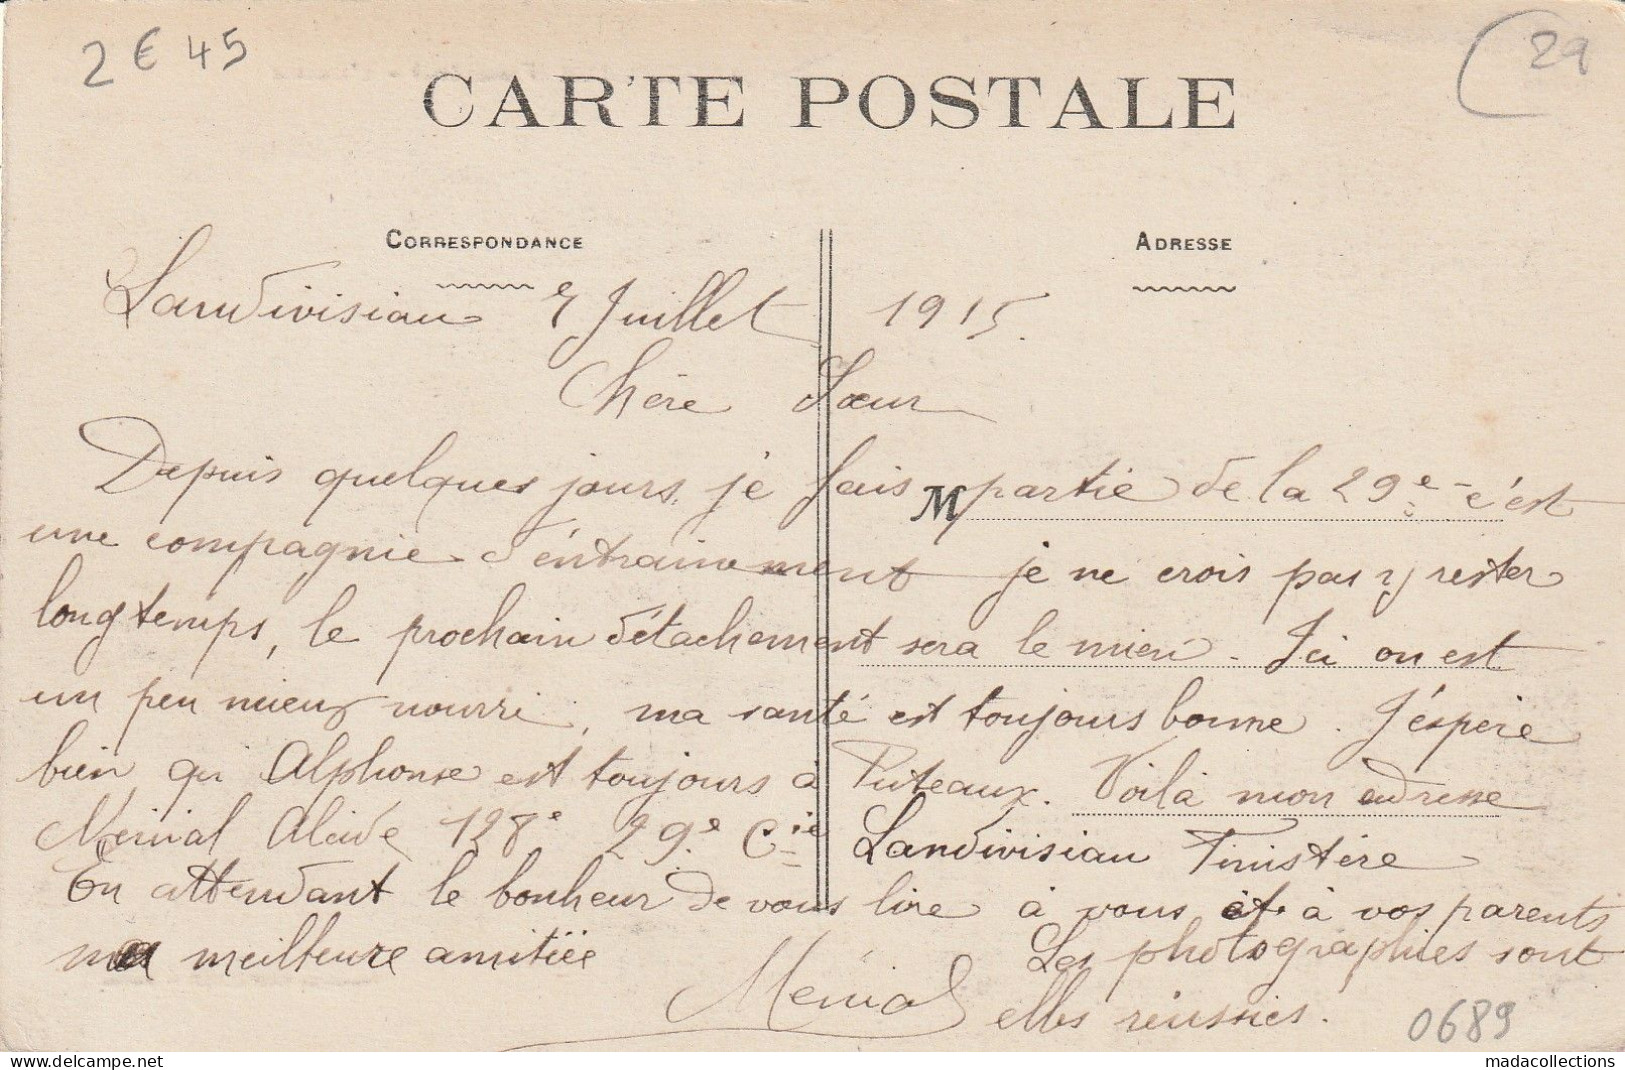 2 € 45
29
CARTE POSTALE
CORRESPONDANCE
ADRESSE
Landivisiau 7 Juillet 1915.
Chère Sœur
Depuis quelques jours, je fais M partie de la 29e c'est
une compagnie d'éntrainement je ne crois pas y rester
longtemps, le prochain détachement sera le mien. Ici on est
un peu mieux nourri, ma santé est toujours bonne. J'éspère
bien qu Alphonse est toujours à Puteaux. Voilà mon adresse
Ménial Alcide 128e 29e Cie Landivisiau Finistère
En attendant le bonheur de vous lire à vous et à vos parents
ma meilleure amitiée
Les photographies sont
Ménial
elles réussies.
0689
www.delcampe.net
madacollections